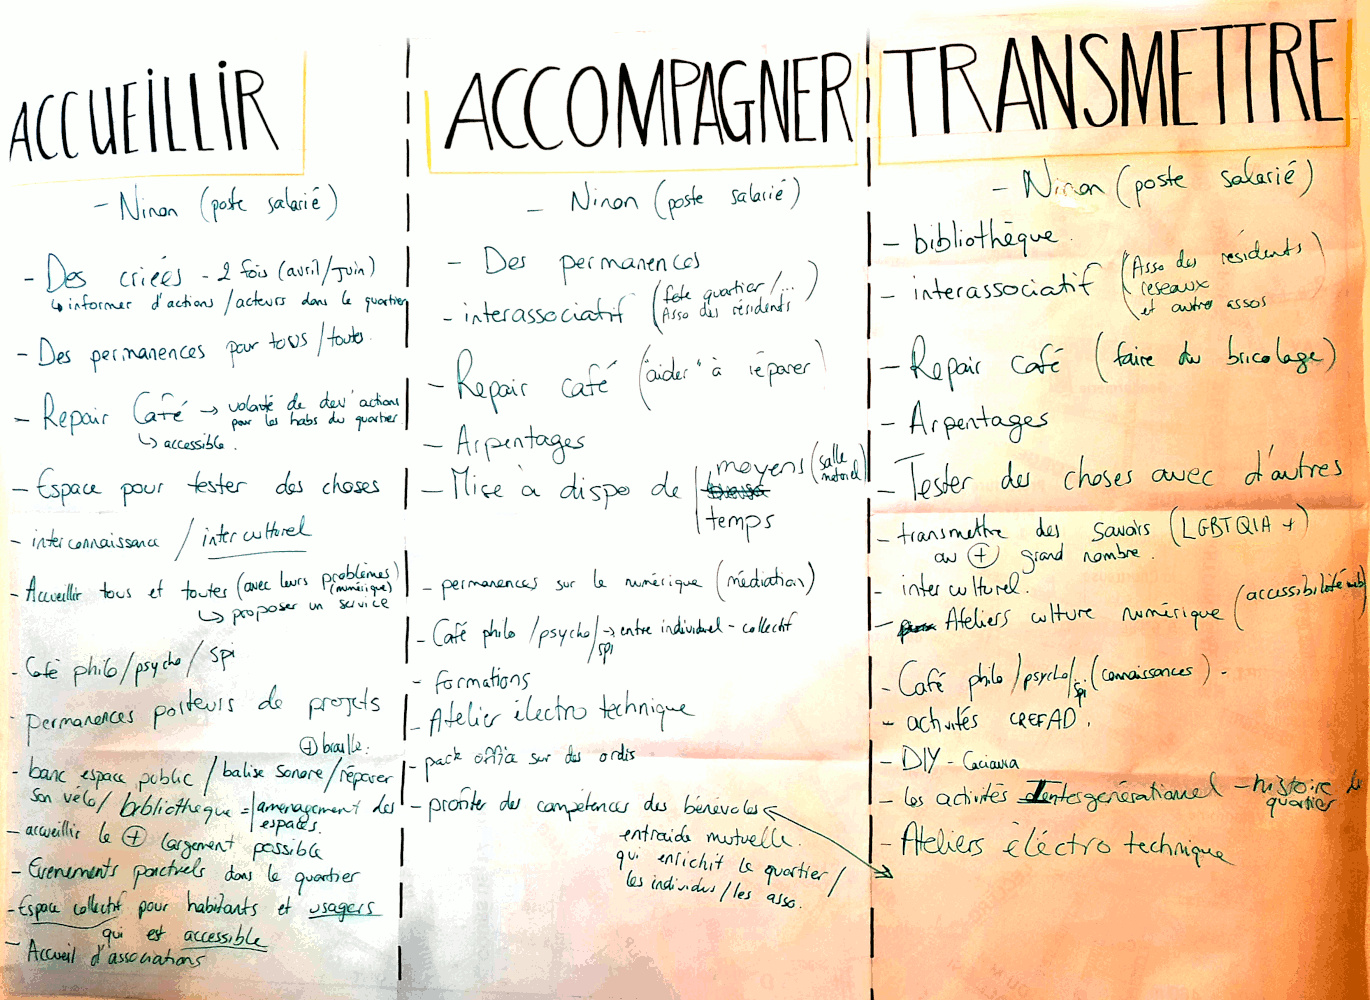 ACCUEILLIR
- Ninon (poste salarié)
- Des criées - 2 fois (avril/juin)
↳ informer d'actions/acteurs dans le quartier
- Des permanences pour tous/toutes.
- Repair Café → volonté de dev' actions
pour les habs du quartier.
↳ accessible.
- Espace pour tester des choses
- interconnaissance / interculturel
- Accueillir tous et toutes (avec leurs problèmes)
(numérique)
↳ proposer un service
- Café philo/psycho/spi
- permanences porteurs de projets
⊕ braille.
- banc espace public / balise sonore / réparer
son vélo / bibliothèque = aménagement des
espaces.
- accueillir le ⊕ largement possible
- Evenements ponctuels dans le quartier
- Espace collectif pour habitants et usagers
qui est accessible
- Accueil d'associations
ACCOMPAGNER
- Ninon (poste salarié)
- Des permanences
- interassociatif (fete quartier/...)
Asso des résidents
- Repair café ("aider" à réparer)
- Arpentages
- Mise à dispo de moyens (salle
matériel)
temps
- permanences sur le numérique (médiation)
- Café philo/psycho/ → entre individuel - collectif
spi
- formations
- Atelier électro technique
- pack office sur des ordis
- profiter des compétences des bénévoles
entraide mutuelle.
qui enrichit le quartier/
les individus/les asso.
TRANSMETTRE
- Ninon (poste salarié)
- bibliothèque.
- interassociatif (Asso des résidents)
réseaux
et autres assos
- Repair café (faire du bricolage)
- Arpentages
- Tester des choses avec d'autres
- transmettre des savoirs (LGBTQIA+)
au ⊕ grand nombre.
- interculturel.
- Ateliers culture numérique (accessibilité web)
- Café philo/psycho/spi (connaissances) -
- activités CREFAD.
- DIY -
- les activités Intergénérationnel - histoire du
quartier
- Ateliers éléctro technique